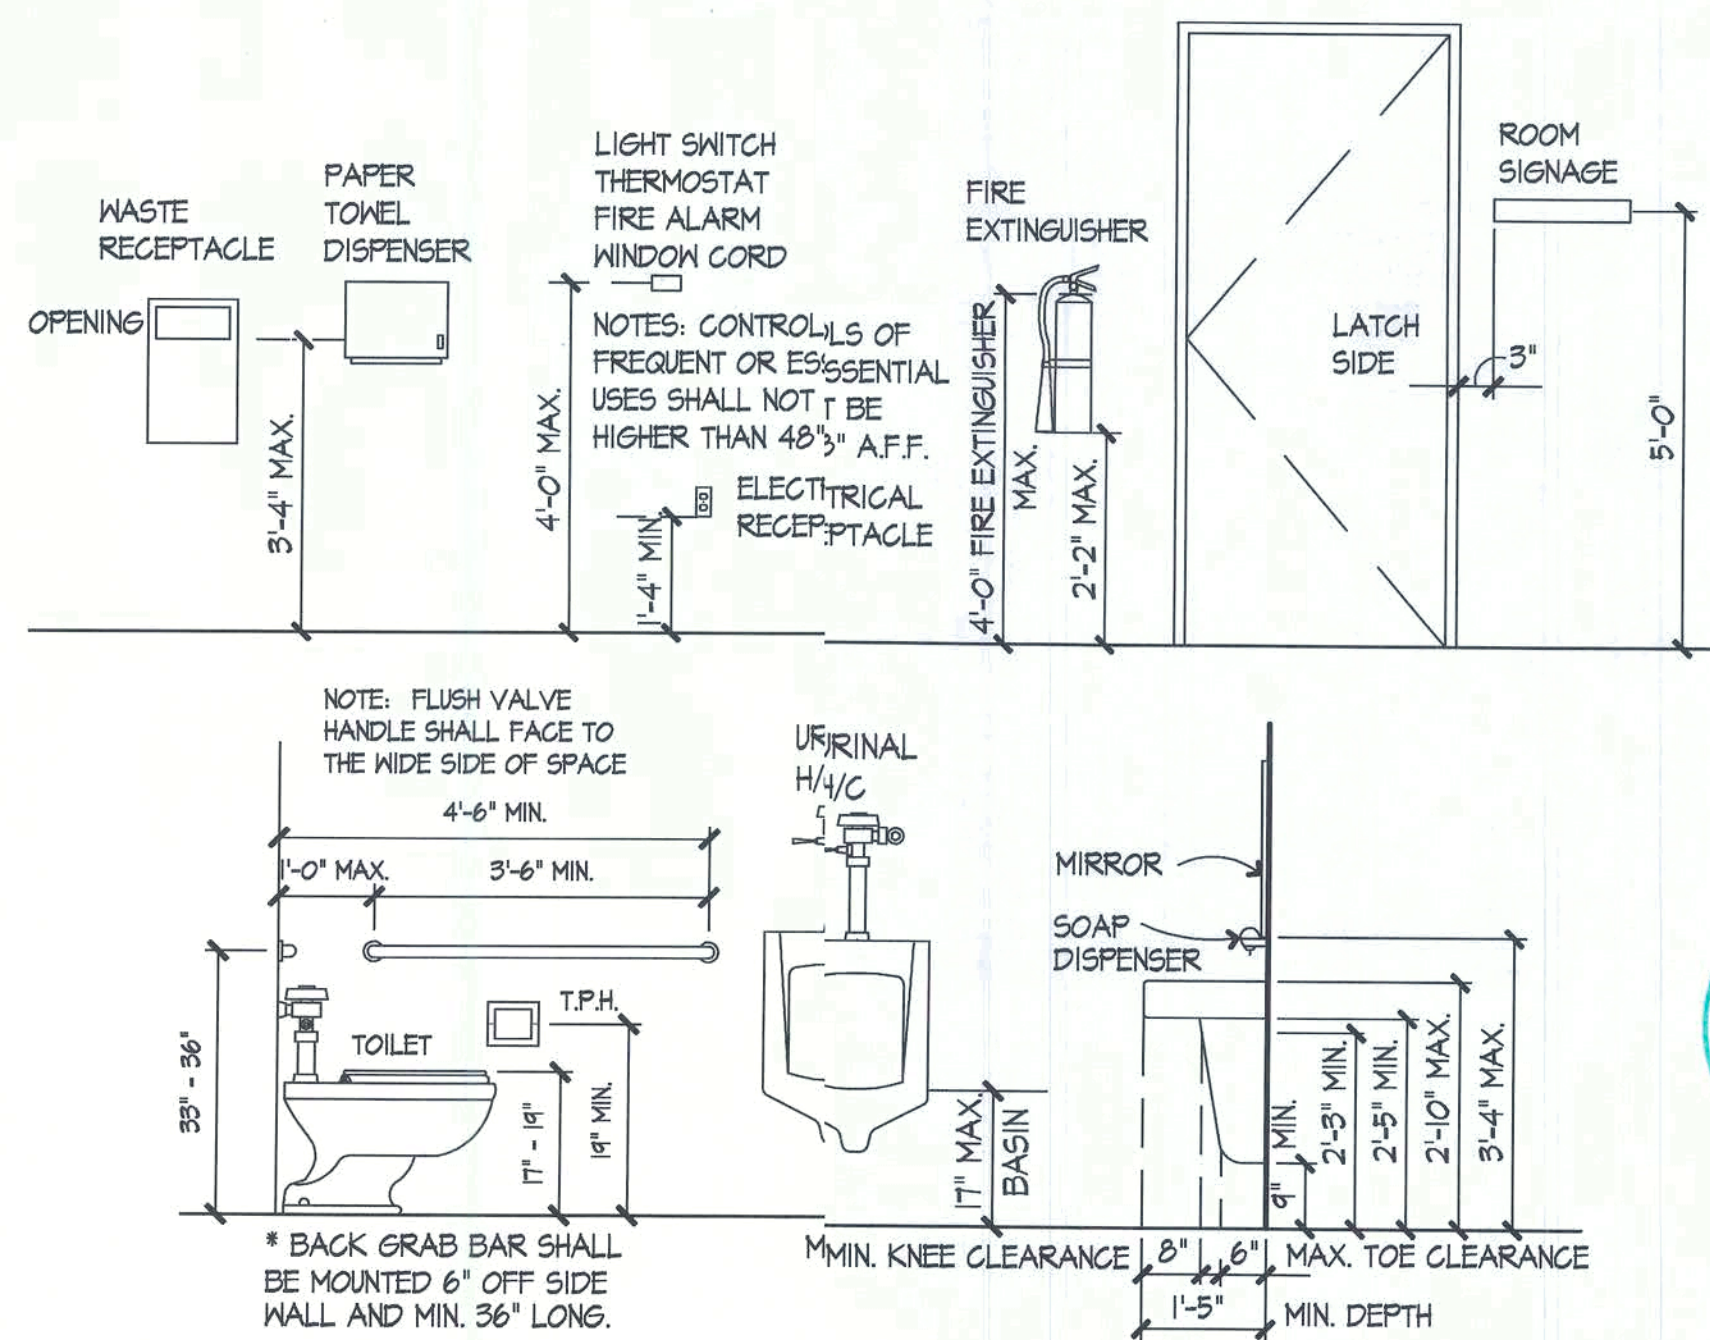 WASTE
RECEPTACLE
OPENING
PAPER
TOWEL
DISPENSER
3'-4" MAX.
LIGHT SWITCH
THERMOSTAT
FIRE ALARM
WINDOW CORD
4'-0" MAX.
NOTES: CONTROLS OF
FREQUENT OR ESSENTIAL
USES SHALL NOT BE
HIGHER THAN 48" A.F.F.
ELECTRICAL
RECEPTACLE
1'-4" MIN.
FIRE
EXTINGUISHER
4'-0" FIRE EXTINGUISHER
MAX.
2'-2" MAX.
LATCH
SIDE
3"
ROOM
SIGNAGE
5'-0"
NOTE: FLUSH VALVE
HANDLE SHALL FACE TO
THE WIDE SIDE OF SPACE
4'-6" MIN.
1'-0" MAX.
3'-6" MIN.
33" - 36"
TOILET
T.P.H.
17" - 19"
19" MIN.
* BACK GRAB BAR SHALL
BE MOUNTED 6" OFF SIDE
WALL AND MIN. 36" LONG.
URINAL
H/C
17" MAX.
BASIN
MIRROR
SOAP
DISPENSER
9" MIN.
2'-3" MIN.
2'-5" MIN.
2'-10" MAX.
3'-4" MAX.
MIN. KNEE CLEARANCE
8"
6"
MAX. TOE CLEARANCE
1'-5"
MIN. DEPTH